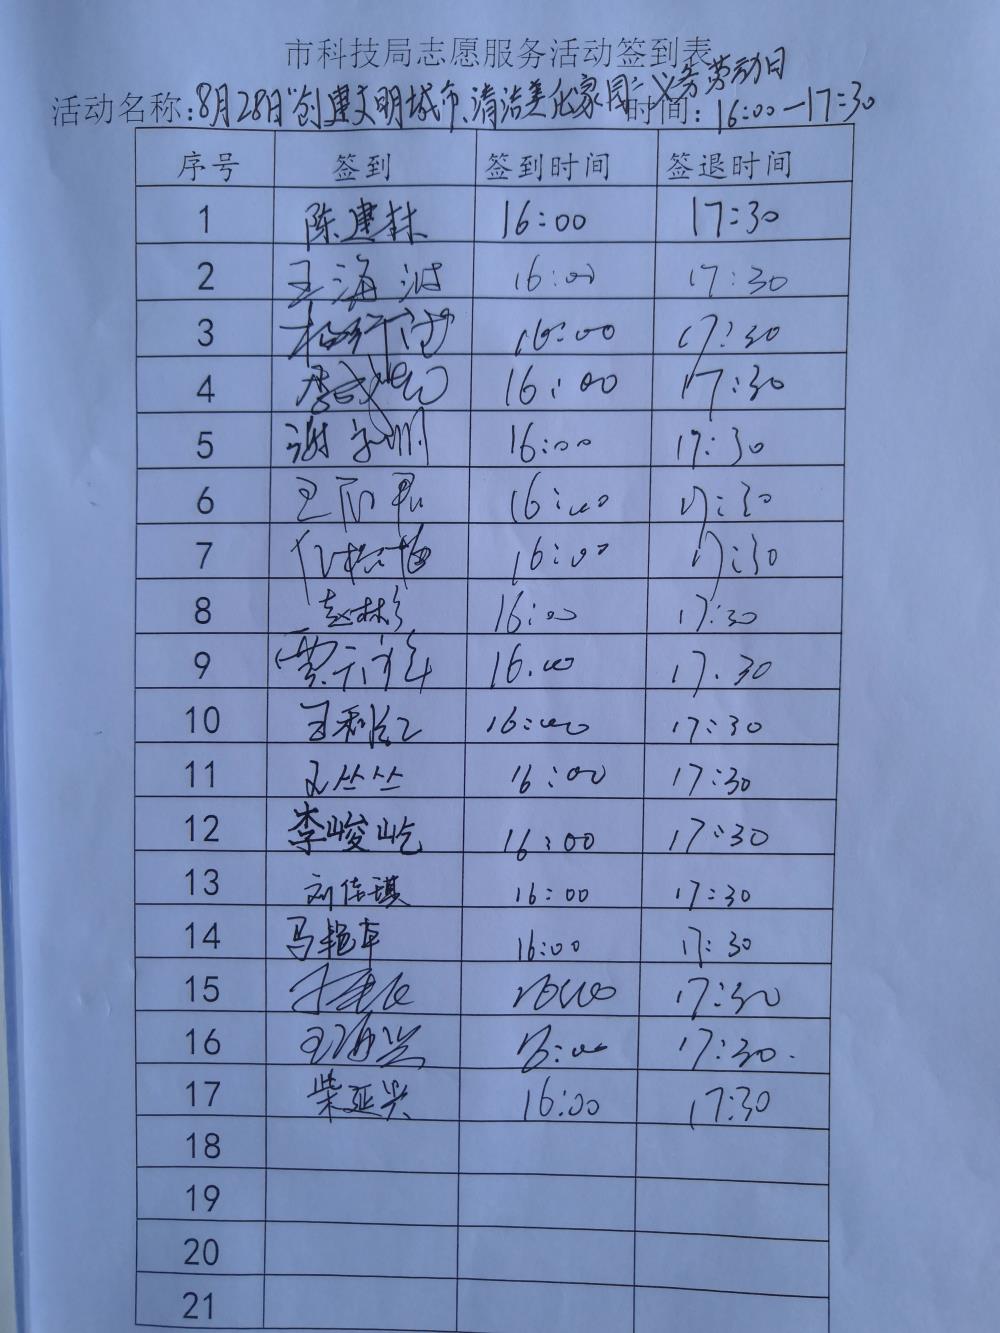 市科技局志愿服务活动签到表
活动名称:8月28日"创建文明城市、清洁美化家园"义务劳动日 时间:16:00—17:30
序号 签到 签到时间 签退时间
1 陈建林 16:00 17:30
2 王海波 16:00 17:30
3 16:00 17:30
4 16:00 17:30
5 16:00 17:30
6 王丽君 16:00 17:30
7 16:00 17:30
8 赵林 16:00 17:30
9 贾 16:00 17:30
10 王利 16:00 17:30
11 王丛丛 16:00 17:30
12 李峻屹 16:00 17:30
13 刘佳琪 16:00 17:30
14 马艳苹 16:00 17:30
15 16:00 17:30
16 王海兰 16:00 17:30
17 柴延兴 16:00 17:30
18
19
20
21